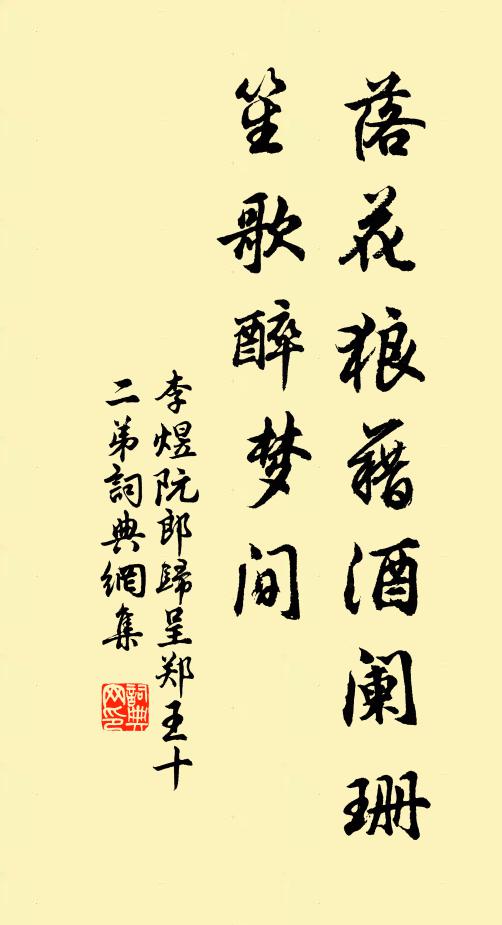 落花狼藉酒阑珊
笙歌醉梦间
李煜阮郎歸呈郑王十
二弟詞典網集
詞典网印